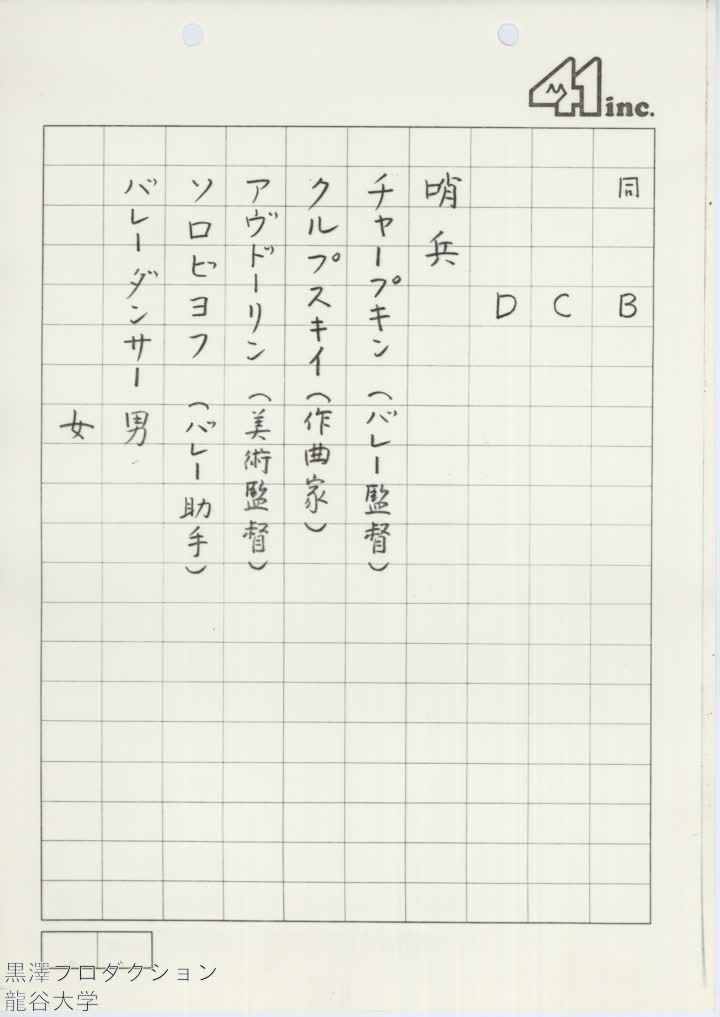 41 inc.
同 B
C
D
哨兵
チャープキン（バレー監督）
クルプスキイ（作曲家）
アヴドーリン（美術監督）
ソロビヨフ（バレー助手）
バレーダンサー 男
女
黒澤プロダクション
龍谷大学